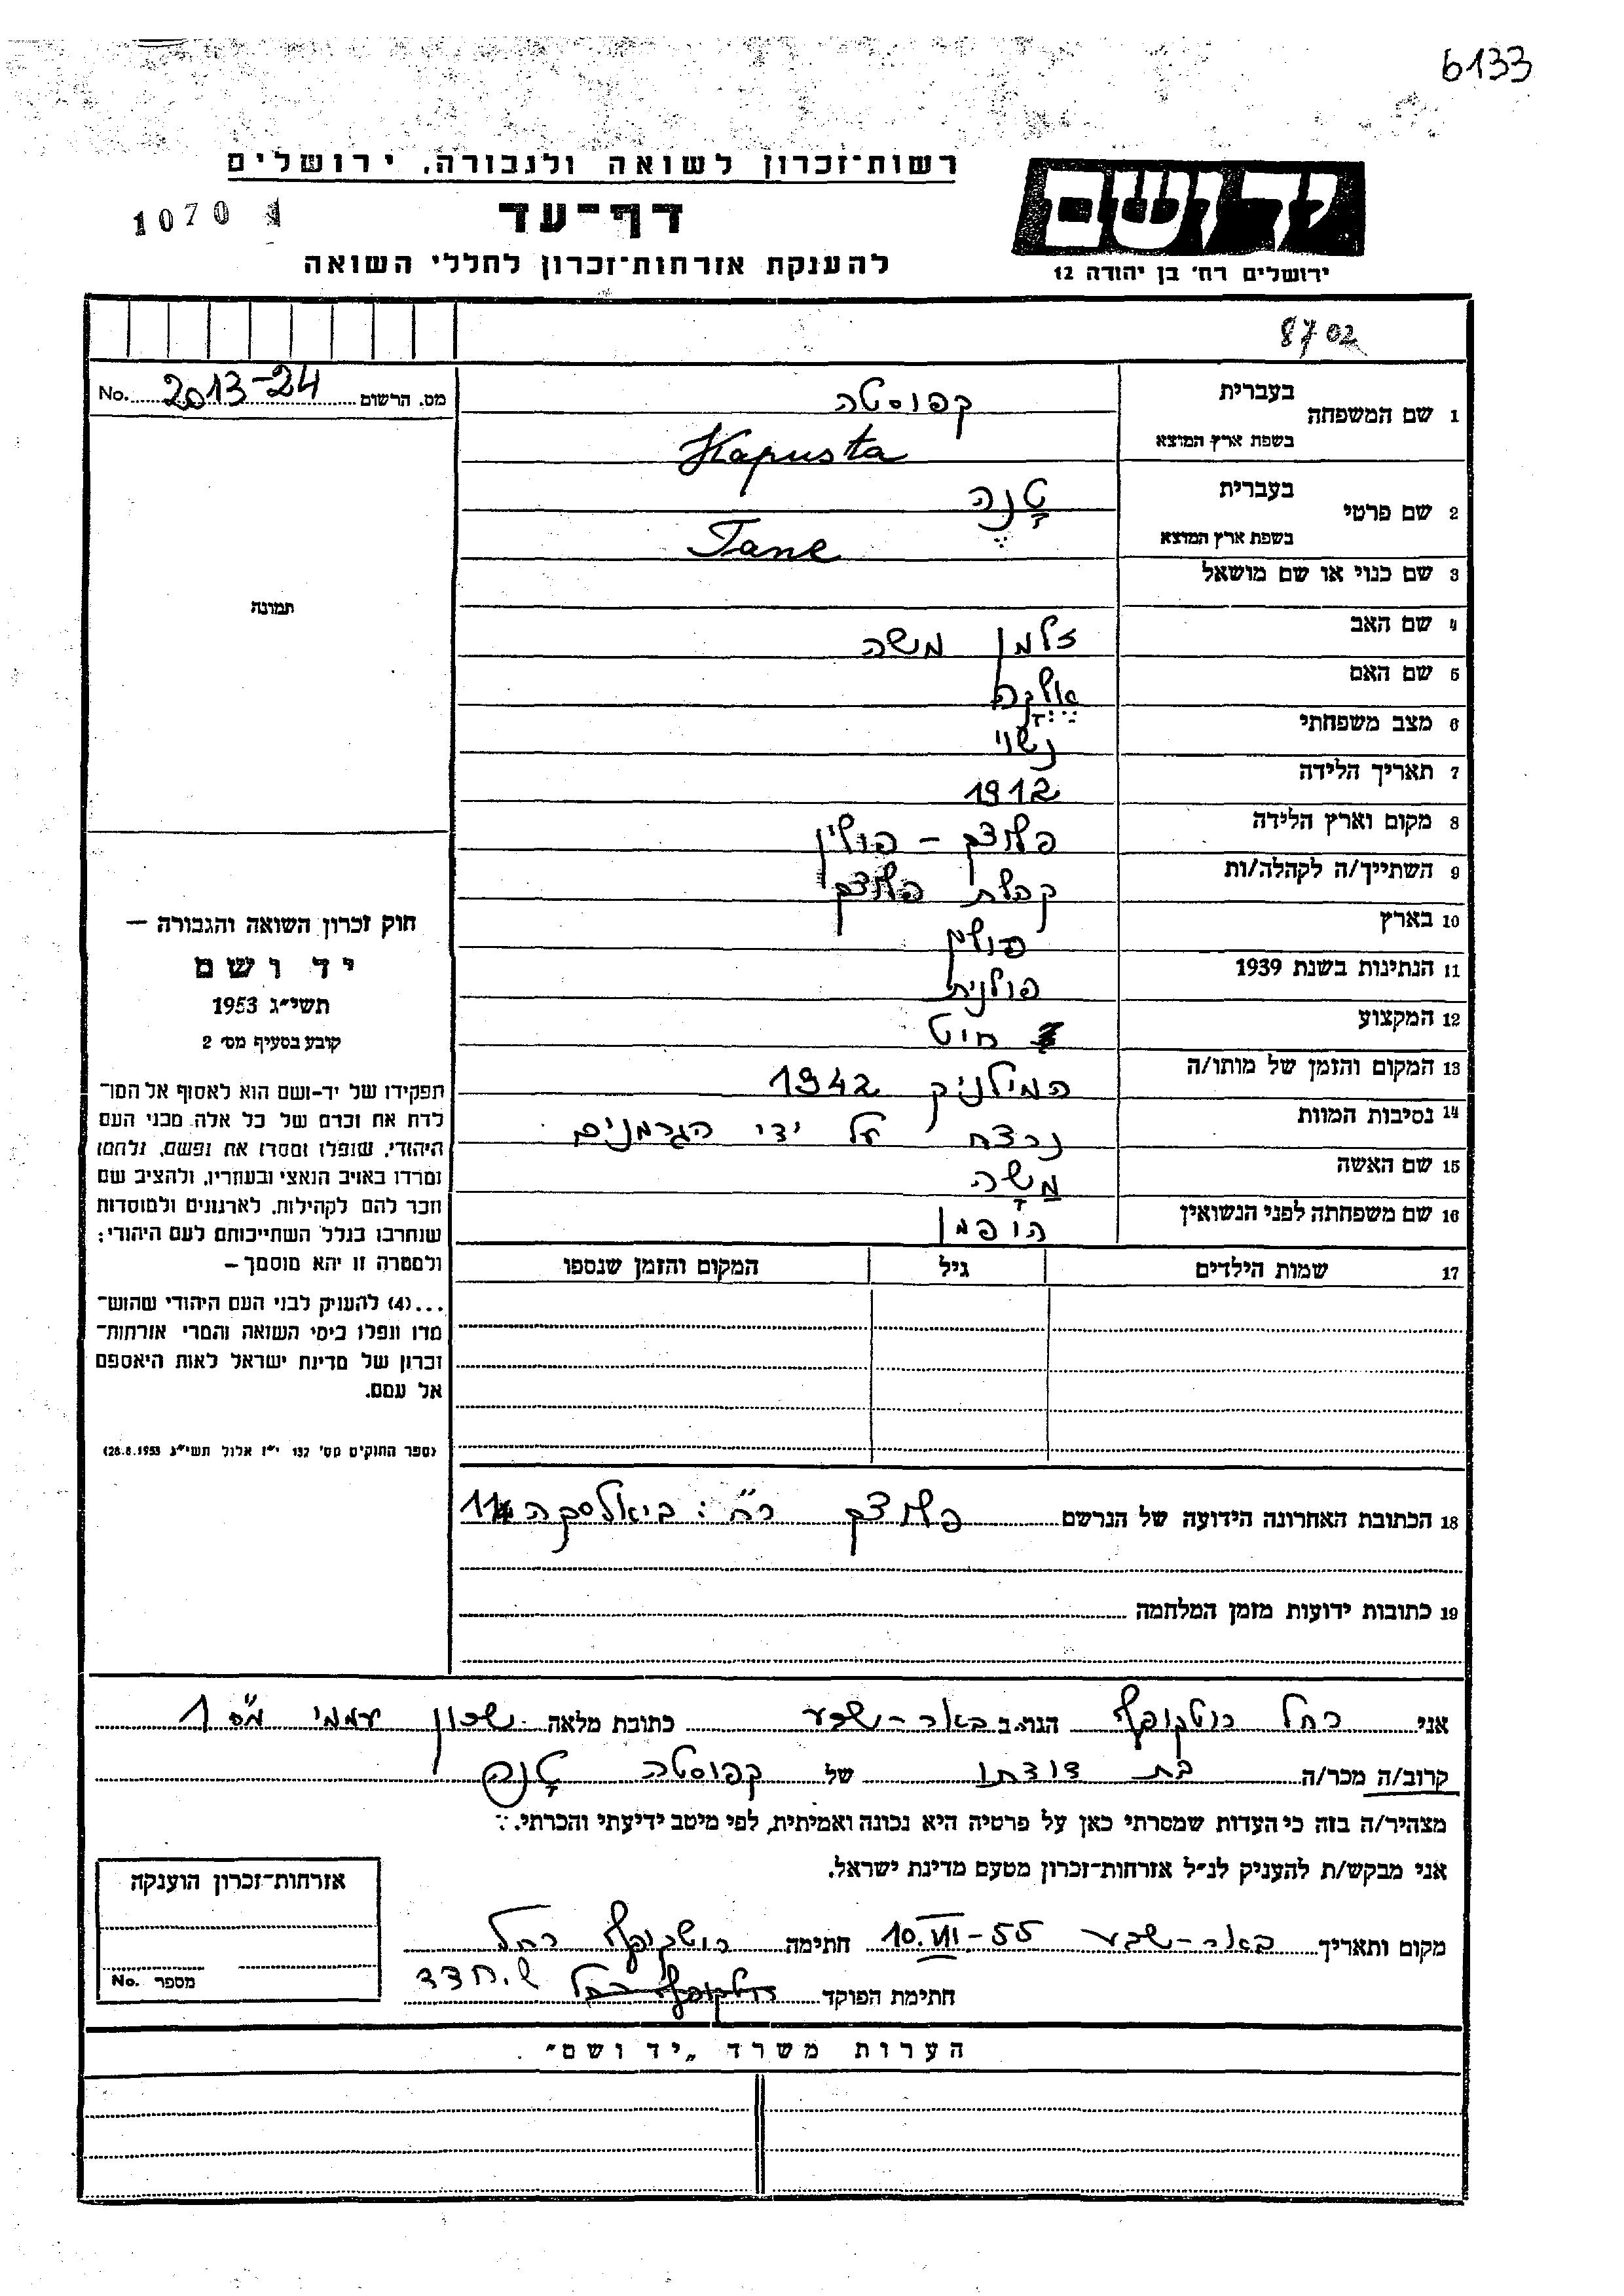 6133
רשות־זכרון לשואה ולגבורה, ירושלים
1070
דף־עד
יד ושם
להענקת אזרחות־זכרון לחללי השואה
ירושלים רח' בן יהודה 12
8702
מס. הרשום 2013-24 No.
בעברית
1 שם המשפחה קפוסטה
בשפת ארץ המוצא Kapusta
בעברית
2 שם פרטי טָנֶה
בשפת ארץ המוצא Tane
3 שם כנוי או שם מושאל
תמונה
4 שם האב זלמן משה
5 שם האם
6 מצב משפחתי נשוי
7 תאריך הלידה 1912
8 מקום וארץ הלידה פלוצק - פולין
9 השתייך/ה לקהלה/ות קהלת פלוצק
10 בארץ פולין
11 הנתינות בשנת 1939 פולנית
12 המקצוע חיט
13 המקום והזמן של מותו/ה 1942
14 נסיבות המוות נרצח על ידי הגרמנים
15 שם האשה מַשָׁה
16 שם משפחתה לפני הנשואין הופמן
17 שמות הילדים גיל המקום והזמן שנספו
חוק זכרון השואה והגבורה —
יד ושם
תשי״ג 1953
קובע בסעיף מס׳ 2
תפקידו של יד-ושם הוא לאסוף אל המו־
לדת את זכרם של כל אלה מבני העם
היהודי, שנפלו ומסרו את נפשם, נלחמו
ומרדו באויב הנאצי ובעוזריו, ולהציב שם
וזכר להם לקהילות, לארגונים ולמוסדות
שנחרבו בגלל השתייכותם לעם היהודי;
ולמטרה זו יהא מוסמך —
...(4) להעניק לבני העם היהודי שהוש־
מדו ונפלו בימי השואה והמרי אזרחות־
זכרון של מדינת ישראל לאות היאספם
אל עמם.
(ספר החוקים מס׳ 132 י״ז אלול תשי״ג 28.8.1953)
18 הכתובת האחרונה הידועה של הנרשם פלוצק רח׳: ביאלסקה 11
19 כתובות ידועות מזמן המלחמה
אני רחל רוטקופף הגר/ה ב באר-שבע כתובת מלאה שכון עממי מס׳ 1
קרוב/ה מכר/ה בת דודתו של קפוסטה טָנה
מצהיר/ה בזה כי העדות שמסרתי כאן על פרטיה היא נכונה ואמיתית, לפי מיטב ידיעתי והכרתי.
אני מבקש/ת להעניק לנ״ל אזרחות־זכרון מטעם מדינת ישראל.
מקום ותאריך באר-שבע 10.VII-55 חתימה רוטקופף רחל
חתימת הפוקד ש. חדד
אזרחות־זכרון הוענקה
מספר No.
הערות משרד „יד ושם״